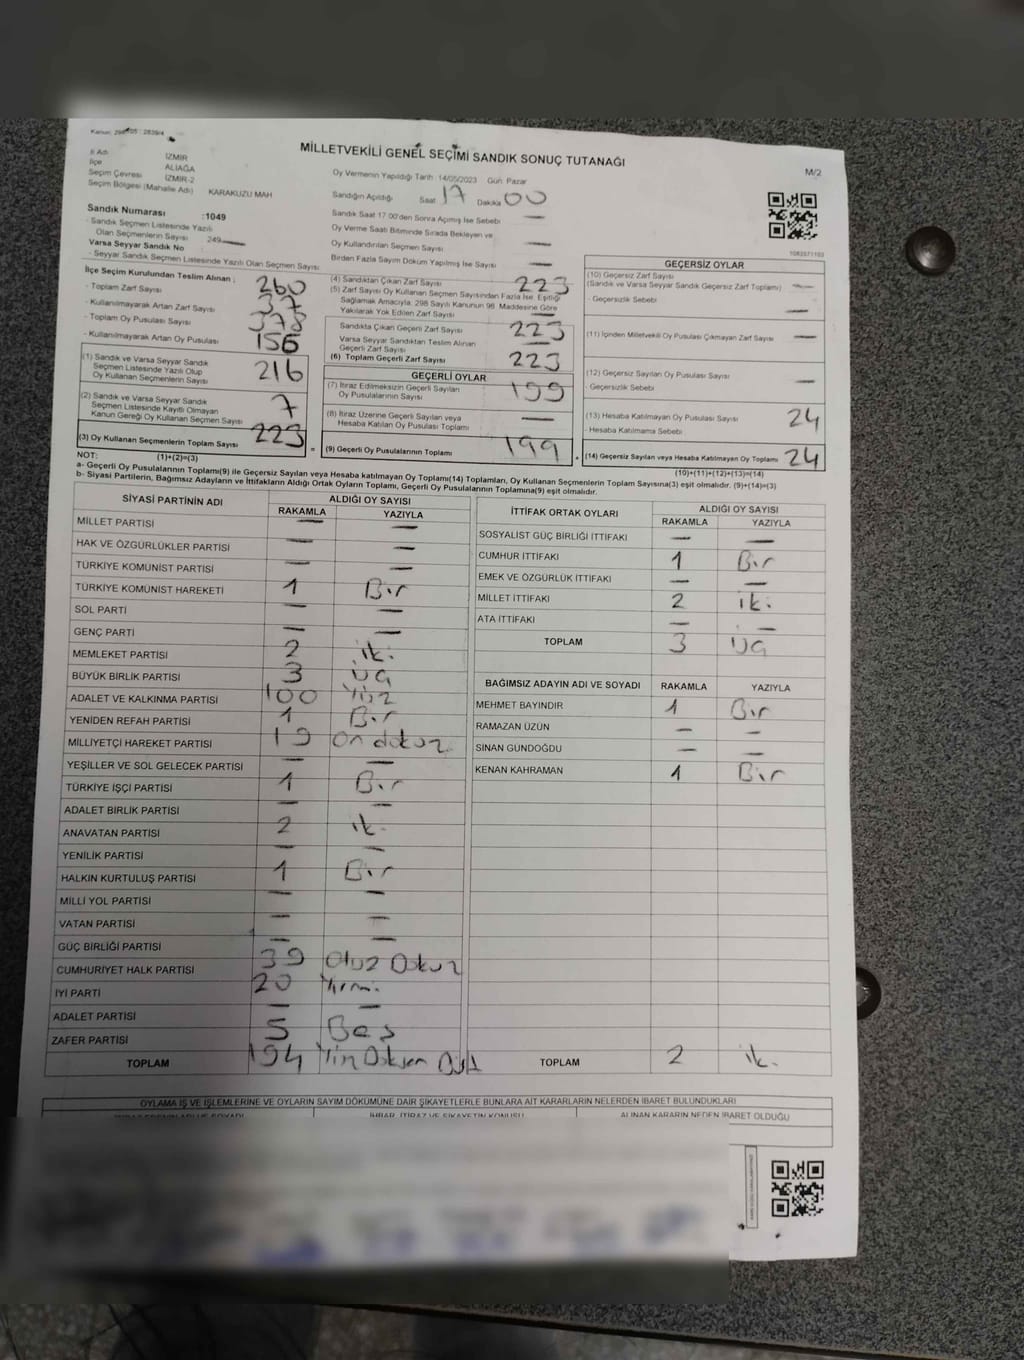 MİLLETVEKİLİ GENEL SEÇİMİ SANDIK SONUÇ TUTANAĞI
M/2
İl Adı İZMİR
İlçe ALİAĞA
Seçim Çevresi İZMİR-2
Seçim Bölgesi (Mahalle Adı) KARAKUZU MAH
Sandık Numarası :1049
- Sandık Seçmen Listesinde Yazılı
Olan Seçmenlerin Sayısı 249
Varsa Seyyar Sandık No
- Seyyar Sandık Seçmen Listesinde Yazılı Olan Seçmen Sayısı
Oy Vermenin Yapıldığı Tarih 14/05/2023 Gün Pazar
Sandığın Açıldığı Saat 17 Dakika 00
Sandık Saat 17 00'den Sonra Açımış İse Sebebi —
Oy Verme Saati Bitiminde Sırada Bekleyen ve
Oy Kullandırılan Seçmen Sayısı —
Birden Fazla Sayım Döküm Yapılmış İse Sayısı —
İlçe Seçim Kurulundan Teslim Alınan :
- Toplam Zarf Sayısı 260
- Kullanılmayarak Artan Zarf Sayısı 37
- Toplam Oy Pusulası Sayısı 378
- Kullanılmayarak Artan Oy Pusulası 156
(1) Sandık ve Varsa Seyyar Sandık
Seçmen Listesinde Yazılı Olup
Oy Kullanan Seçmenlerin Sayısı 216
(2) Sandık ve Varsa Seyyar Sandık
Seçmen Listesinde Kayıtlı Olmayan
Kanun Gereği Oy Kullanan Seçmen Sayısı 7
(3) Oy Kullanan Seçmenlerin Toplam Sayısı 223
(4) Sandıktan Çıkan Zarf Sayısı 223
(5) Zarf Sayısı Oy Kullanan Seçmen Sayısından Fazla İse, Eşitliği
Sağlamak Amacıyla, 298 Sayılı Kanunun 98. Maddesine Göre
Yakılarak Yok Edilen Zarf Sayısı —
Sandıkta Çıkan Geçerli Zarf Sayısı 223
Varsa Seyyar Sandıktan Teslim Alınan
Geçerli Zarf Sayısı —
(6) Toplam Geçerli Zarf Sayısı 223
GEÇERLİ OYLAR
(7) İtiraz Edilmeksizin Geçerli Sayılan
Oy Pusulalarının Sayısı 199
(8) İtiraz Üzerine Geçerli Sayılan veya
Hesaba Katılan Oy Pusulası Toplamı —
(9) Geçerli Oy Pusulalarının Toplamı 199
GEÇERSİZ OYLAR
(10) Geçersiz Zarf Sayısı
(Sandık ve Varsa Seyyar Sandık Geçersiz Zarf Toplamı) —
- Geçersizlik Sebebi —
(11) İçinden Milletvekili Oy Pusulası Çıkmayan Zarf Sayısı —
(12) Geçersiz Sayılan Oy Pusulası Sayısı —
- Geçersizlik Sebebi
(13) Hesaba Katılmayan Oy Pusulası Sayısı 24
- Hesaba Katılmama Sebebi
(14) Geçersiz Sayılan veya Hesaba Katılmayan Oy Toplamı 24
NOT: (1)+(2)=(3) (10)+(11)+(12)+(13)=(14)
a- Geçerli Oy Pusulalarının Toplamı(9) ile Geçersiz Sayılan veya Hesaba katılmayan Oy Toplamı(14) Toplamları, Oy Kullanan Seçmenlerin Toplam Sayısına(3) eşit olmalıdır. (9)+(14)=(3)
b- Siyasi Partilerin, Bağımsız Adayların ve İttifakların Aldığı Ortak Oyların Toplamı, Geçerli Oy Pusulalarının Toplamına(9) eşit olmalıdır.
SİYASİ PARTİNİN ADI ALDIĞI OY SAYISI
RAKAMLA YAZIYLA
MİLLET PARTİSİ — —
HAK VE ÖZGÜRLÜKLER PARTİSİ — —
TÜRKİYE KOMÜNİST PARTİSİ — —
TÜRKİYE KOMÜNİST HAREKETİ 1 Bir
SOL PARTİ — —
GENÇ PARTİ — —
MEMLEKET PARTİSİ 2 iki
BÜYÜK BİRLİK PARTİSİ 3 üç
ADALET VE KALKINMA PARTİSİ 100 Yüz
YENİDEN REFAH PARTİSİ 1 Bir
MİLLİYETÇİ HAREKET PARTİSİ 19 on dokuz
YEŞİLLER VE SOL GELECEK PARTİSİ — —
TÜRKİYE İŞÇİ PARTİSİ 1 Bir
ADALET BİRLİK PARTİSİ — —
ANAVATAN PARTİSİ 2 iki
YENİLİK PARTİSİ — —
HALKIN KURTULUŞ PARTİSİ 1 Bir
MİLLİ YOL PARTİSİ — —
VATAN PARTİSİ — —
GÜÇ BİRLİĞİ PARTİSİ — —
CUMHURİYET HALK PARTİSİ 39 Otuz Dokuz
İYİ PARTİ 20 Yirmi
ADALET PARTİSİ — —
ZAFER PARTİSİ 5 Beş
TOPLAM 194 Yüz Doksan Dört
İTTİFAK ORTAK OYLARI ALDIĞI OY SAYISI
RAKAMLA YAZIYLA
SOSYALİST GÜÇ BİRLİĞİ İTTİFAKI — —
CUMHUR İTTİFAKI 1 Bir
EMEK VE ÖZGÜRLÜK İTTİFAKI — —
MİLLET İTTİFAKI 2 iki
ATA İTTİFAKI — —
TOPLAM 3 üç
BAĞIMSIZ ADAYIN ADI VE SOYADI RAKAMLA YAZIYLA
MEHMET BAYINDIR 1 Bir
RAMAZAN ÜZÜN — —
SİNAN GÜNDOĞDU — —
KENAN KAHRAMAN 1 Bir
TOPLAM 2 iki
OYLAMA İŞ VE İŞLEMLERİNE VE OYLARIN SAYIM DÖKÜMÜNE DAİR ŞİKAYETLERLE BUNLARA AİT KARARLARIN NELERDEN İBARET BULUNDUKLARI
İHBAR, İTİRAZ VE ŞİKAYETİN KONUSU ALINAN KARARIN NEDEN İBARET OLDUĞU